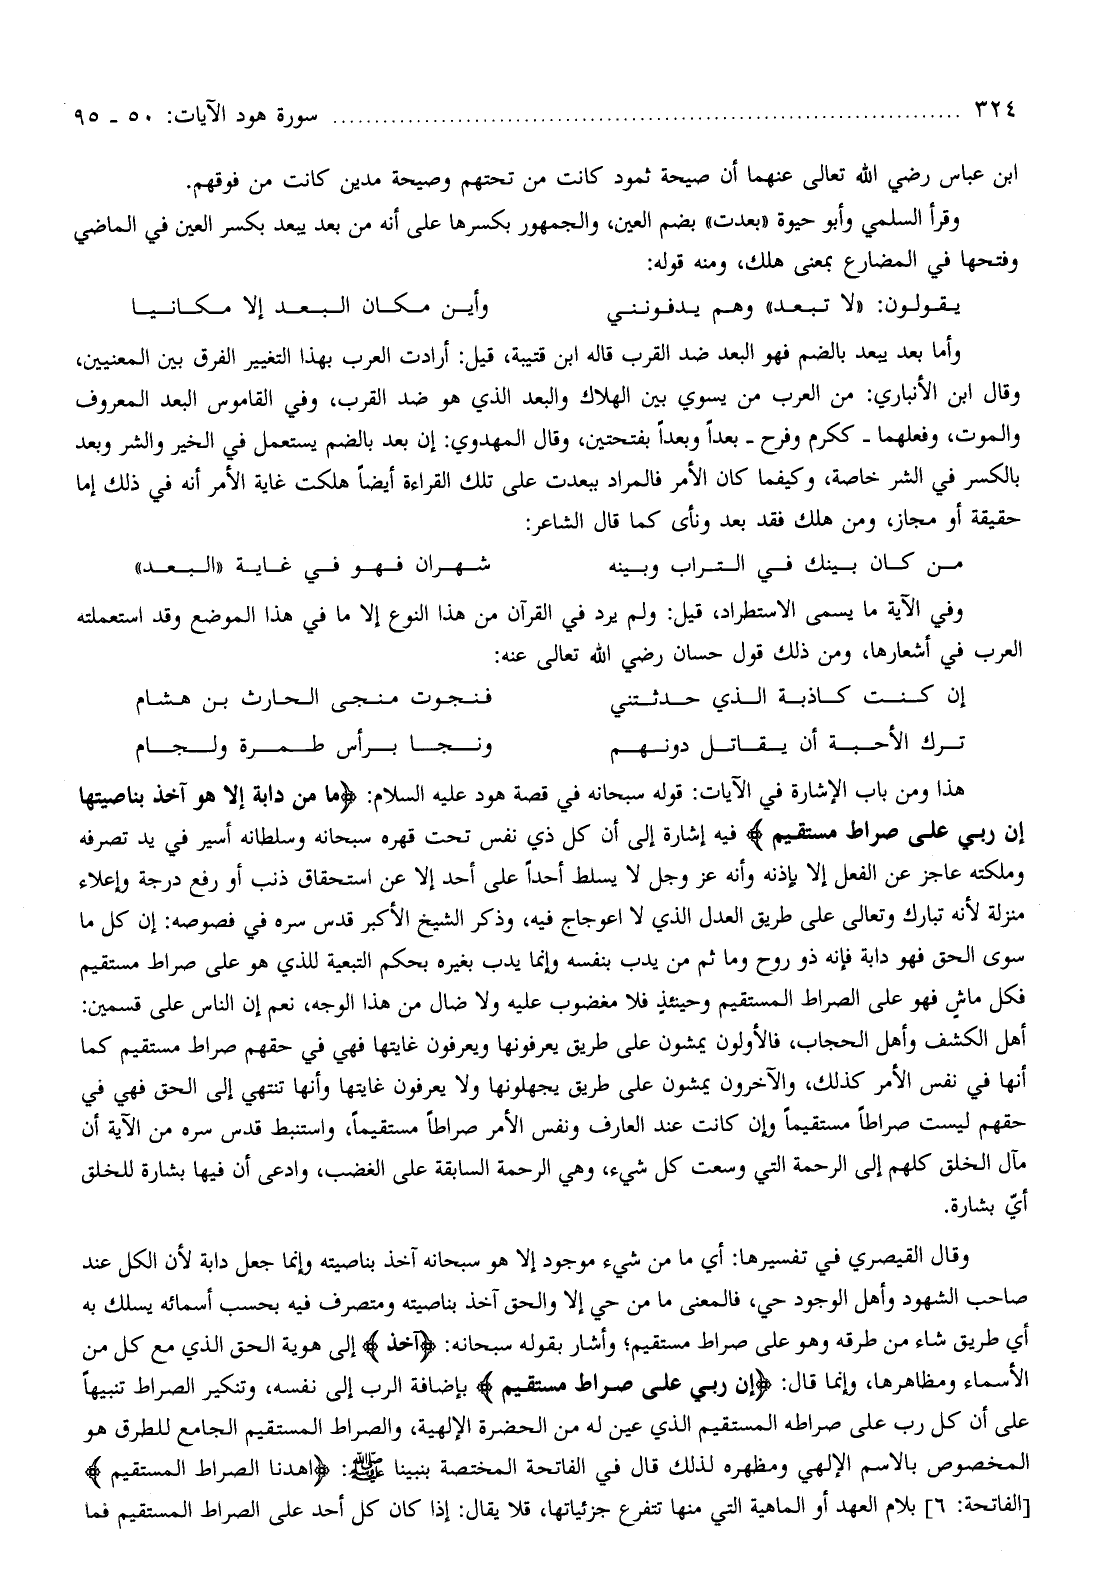 ٣٢٤ ........................ سورة هود الآيات: ٥٠ ـ ٩٥
ابن عباس رضي الله تعالى عنهما أن صيحة ثمود كانت من تحتهم وصيحة مدين كانت من فوقهم.
وقرأ السلمي وأبو حيوة «بعدت» بضم العين، والجمهور بكسرها على أنه من بعد يبعد بكسر العين في الماضي
وفتحها في المضارع بمعنى هلك، ومنه قوله:
يقولون: «لا تبعد» وهم يدفونني وأين مكان البعد إلا مكانيا
وأما بعد يبعد بالضم فهو البعد ضد القرب قاله ابن قتيبة، قيل: أرادت العرب بهذا التغيير الفرق بين المعنيين،
وقال ابن الأنباري: من العرب من يسوي بين الهلاك والبعد الذي هو ضد القرب، وفي القاموس البعد المعروف
والموت، وفعلهما ـ ككرم وفرح ـ بعداً وبعداً بفتحتين، وقال المهدوي: إن بعد بالضم يستعمل في الخير والشر وبعد
بالكسر في الشر خاصة، وكيفما كان الأمر فالمراد ببعدت على تلك القراءة أيضاً هلكت غاية الأمر أنه في ذلك إما
حقيقة أو مجاز، ومن هلك فقد بعد ونأى كما قال الشاعر:
من كان بينك في التراب وبينه شهران فهو في غاية «البعد»
وفي الآية ما يسمى الاستطراد، قيل: ولم يرد في القرآن من هذا النوع إلا ما في هذا الموضع وقد استعملته
العرب في أشعارها، ومن ذلك قول حسان رضي الله تعالى عنه:
إن كنت كاذبة الذي حدثتني فنجوت منجى الحارث بن هشام
ترك الأحبة أن يقاتل دونهم ونجا برأس طمرة ولجام
هذا ومن باب الإشارة في الآيات: قوله سبحانه في قصة هود عليه السلام: ﴿ما من دابة إلا هو آخذ بناصيتها
إن ربي على صراط مستقيم﴾ فيه إشارة إلى أن كل ذي نفس تحت قهره سبحانه وسلطانه أسير في يد تصرفه
وملكته عاجز عن الفعل إلا بإذنه وأنه عز وجل لا يسلط أحداً على أحد إلا عن استحقاق ذنب أو رفع درجة وإعلاء
منزلة لأنه تبارك وتعالى على طريق العدل الذي لا اعوجاج فيه، وذكر الشيخ الأكبر قدس سره في فصوصه: إن كل ما
سوى الحق فهو دابة فإنه ذو روح وما ثم من يدب بنفسه وإنما يدب بغيره بحكم التبعية للذي هو على صراط مستقيم
فكل ماشٍ فهو على الصراط المستقيم وحينئذٍ فلا مغضوب عليه ولا ضال من هذا الوجه، نعم إن الناس على قسمين:
أهل الكشف وأهل الحجاب، فالأولون يمشون على طريق يعرفونها ويعرفون غايتها فهي في حقهم صراط مستقيم كما
أنها في نفس الأمر كذلك، والآخرون يمشون على طريق يجهلونها ولا يعرفون غايتها وأنها تنتهي إلى الحق فهي في
حقهم ليست صراطاً مستقيماً وإن كانت عند العارف ونفس الأمر صراطاً مستقيماً، واستنبط قدس سره من الآية أن
مآل الخلق كلهم إلى الرحمة التي وسعت كل شيء، وهي الرحمة السابقة على الغضب، وادعى أن فيها بشارة للخلق
أيّ بشارة.
وقال القيصري في تفسيرها: أي ما من شيء موجود إلا هو سبحانه آخذ بناصيته وإنما جعل دابة لأن الكل عند
صاحب الشهود وأهل الوجود حي، فالمعنى ما من حي إلا والحق آخذ بناصيته ومتصرف فيه بحسب أسمائه يسلك به
أي طريق شاء من طرقه وهو على صراط مستقيم؛ وأشار بقوله سبحانه: ﴿آخذ﴾ إلى هوية الحق الذي مع كل من
الأسماء ومظاهرها، وإنما قال: ﴿إن ربي على صراط مستقيم﴾ بإضافة الرب إلى نفسه، وتنكير الصراط تنبيهاً
على أن كل رب على صراطه المستقيم الذي عين له من الحضرة الإلهية، والصراط المستقيم الجامع للطرق هو
المخصوص بالاسم الإلهي ومظهره لذلك قال في الفاتحة المختصة بنبينا ﷺ: ﴿اهدنا الصراط المستقيم﴾
[الفاتحة: ٦] بلام العهد أو الماهية التي منها تتفرع جزئياتها، فلا يقال: إذا كان كل أحد على الصراط المستقيم فما